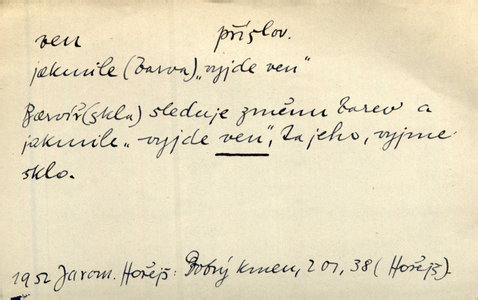 ven příslov.
jakmile (barva) „vyjde ven"
Barvíř (skla) sleduje změnu barev a
jakmile „vyjde ven", vyjme
sklo.
1952 Jarom. Hořejš: Dobrý kmen, 201, 38 (Hořejš).